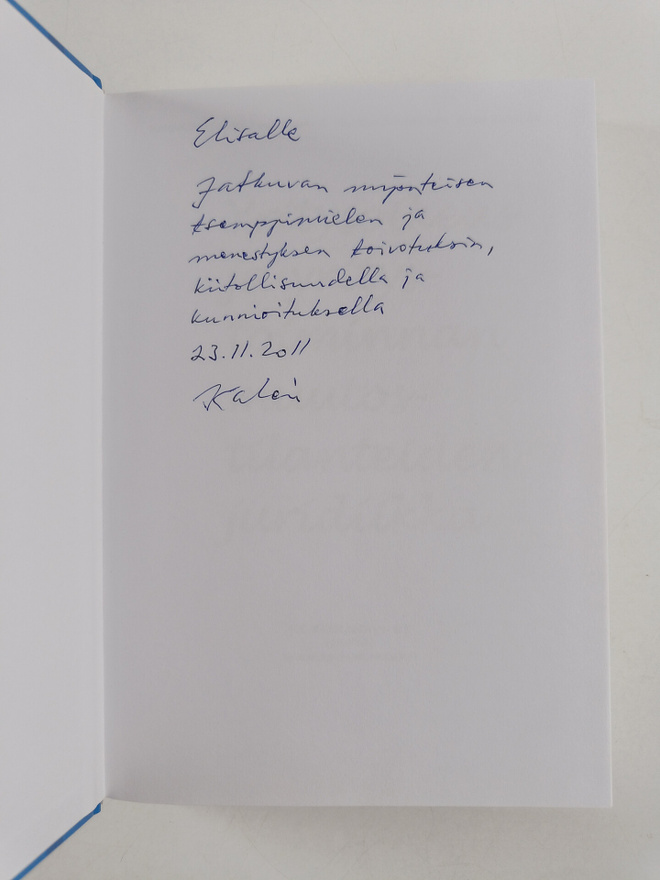 Elisalle
Jatkuvan myönteisen
tsemppimielen ja
menestyksen toivotuksin,
kiitollisuudella ja
kunnioituksella
23.11.2011
tilanteiden
juridiikka